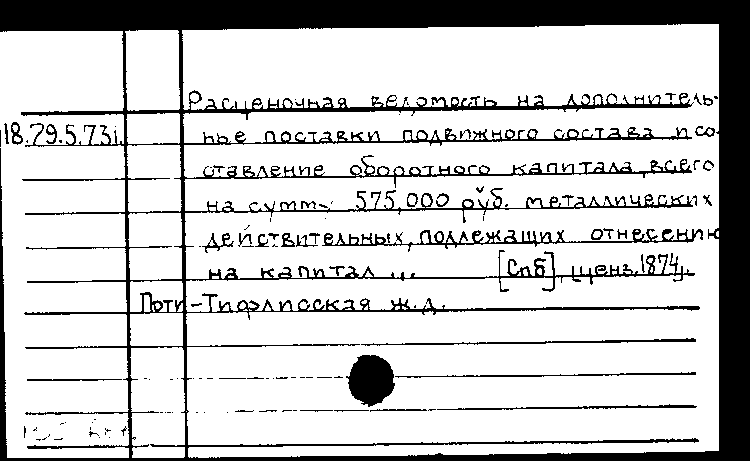 Расценочная ведомость на дополнитель-
18.79.5.731. ные поставки подвижного состава и со-
ставление оборотного капитала, всего
на сумму 575,000 руб. металлических
действительных, подлежащих отнесению
на капитал ... [Спб], ценз. 1874г.
Поти-Тифлисская ж.д.